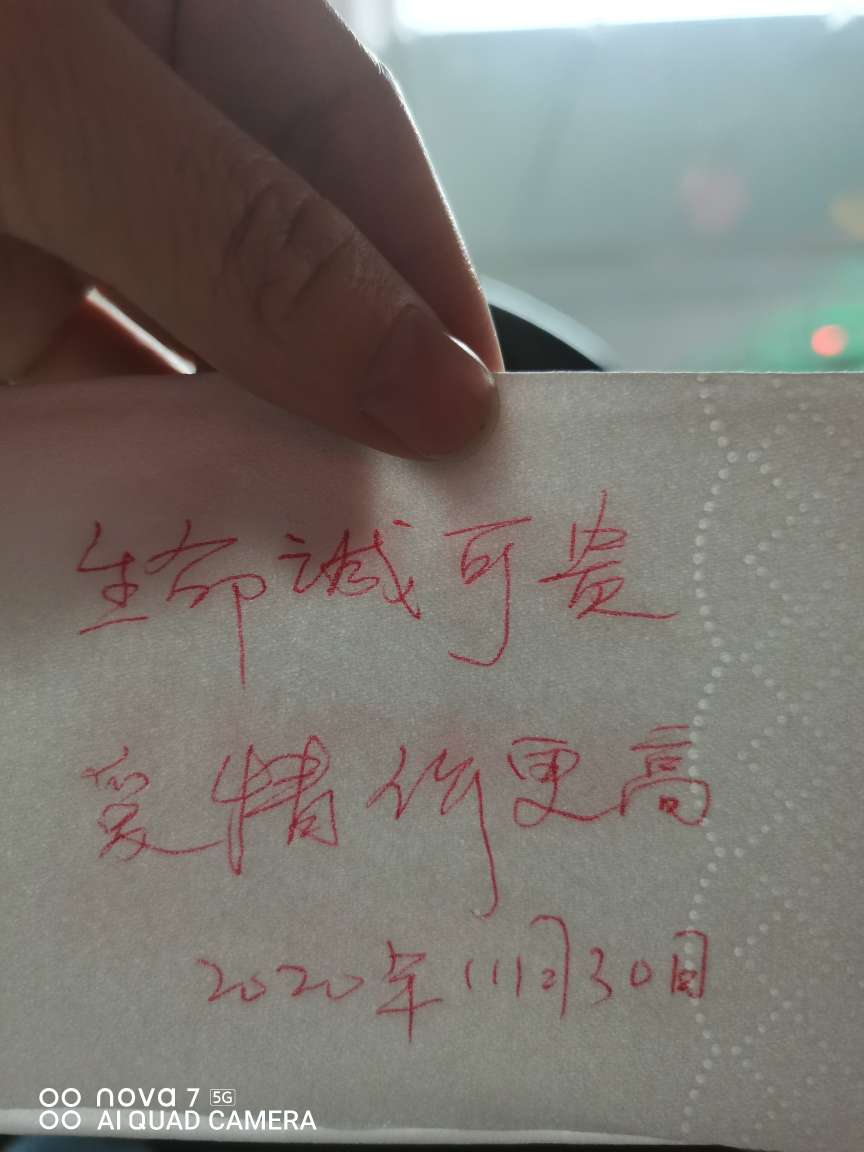 生命诚可贵
爱情价更高
2020年11月30日
nova 7 5G
AI QUAD CAMERA